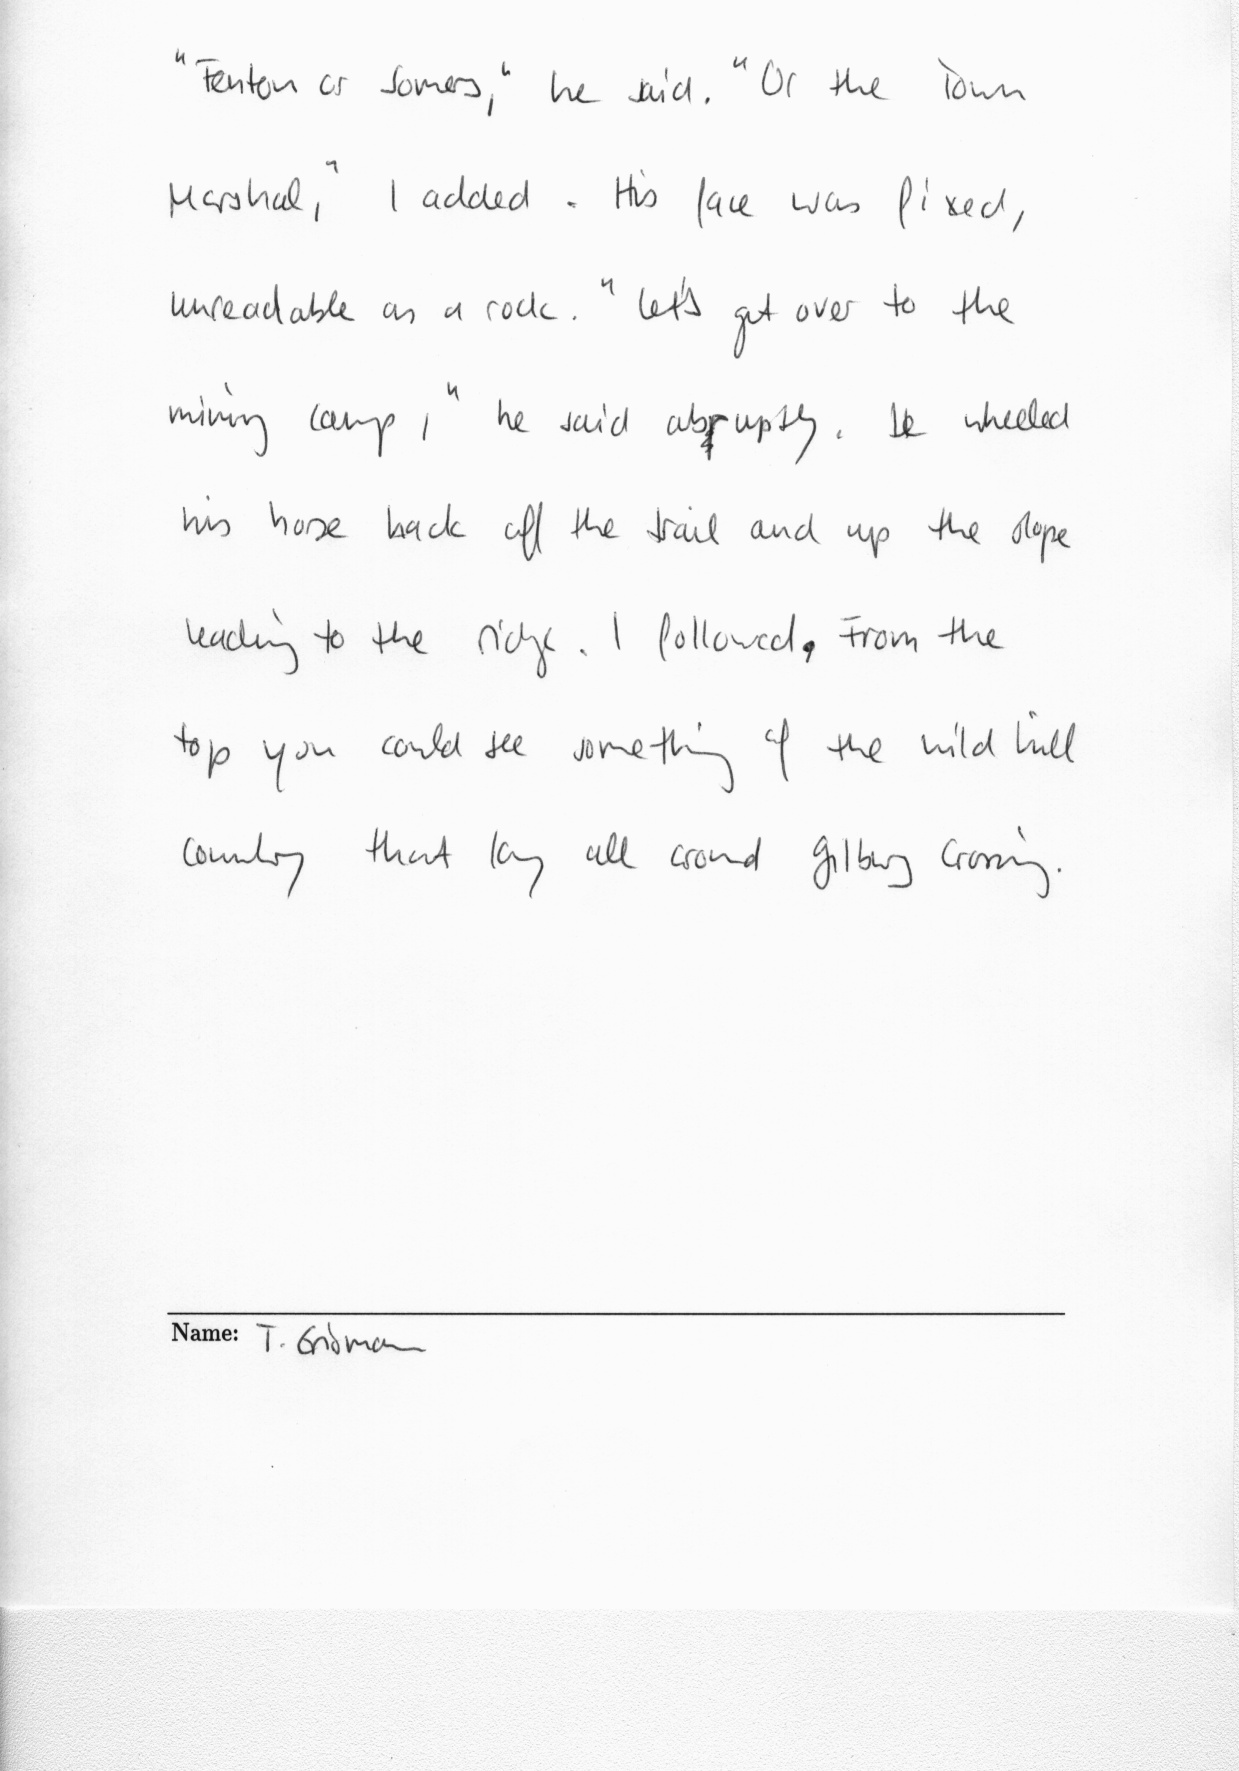 "Fenton or Somers," he said. "Or the Town
Marshal," I added. His face was fixed,
unreadable as a rock. "Let's get over to the
mining camp," he said abruptly. He wheeled
his horse back off the trail and up the slope
leading to the ridge. I followed. From the
top you could see something of the wild hill
country that lay all around Gilburg Crossing.
Name: T.